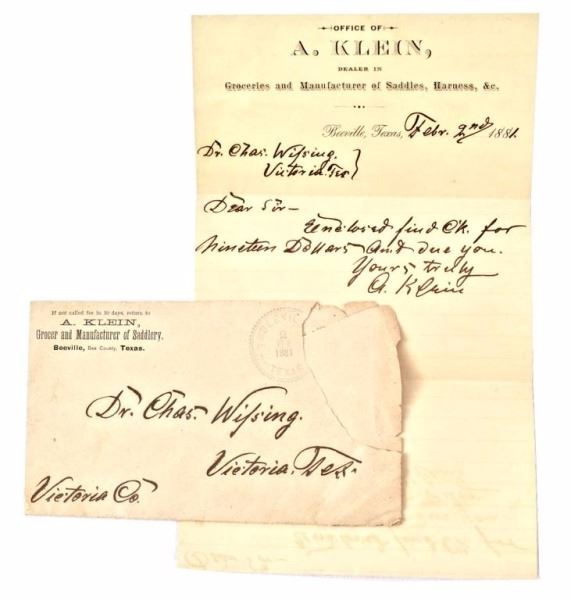 OFFICE OF
A. KLEIN,
DEALER IN
Groceries and Manufacturer of Saddles, Harness, &c.
Beeville, Texas, Febr. 2nd 1881.
Dr. Chas. Wiſsing.
Victoria. Tex
Dear Sir—
Enclosed find Ck. for
Nineteen Dollars And due you.
Yours truly
A. Klein
If not called for in 30 days, return to
A. KLEIN,
Grocer and Manufacturer of Saddlery.
Beeville, Bee County, Texas.
1881
TEXAS
Dr. Chas. Wiſsing.
Victoria. Tex.
Victoria Co.